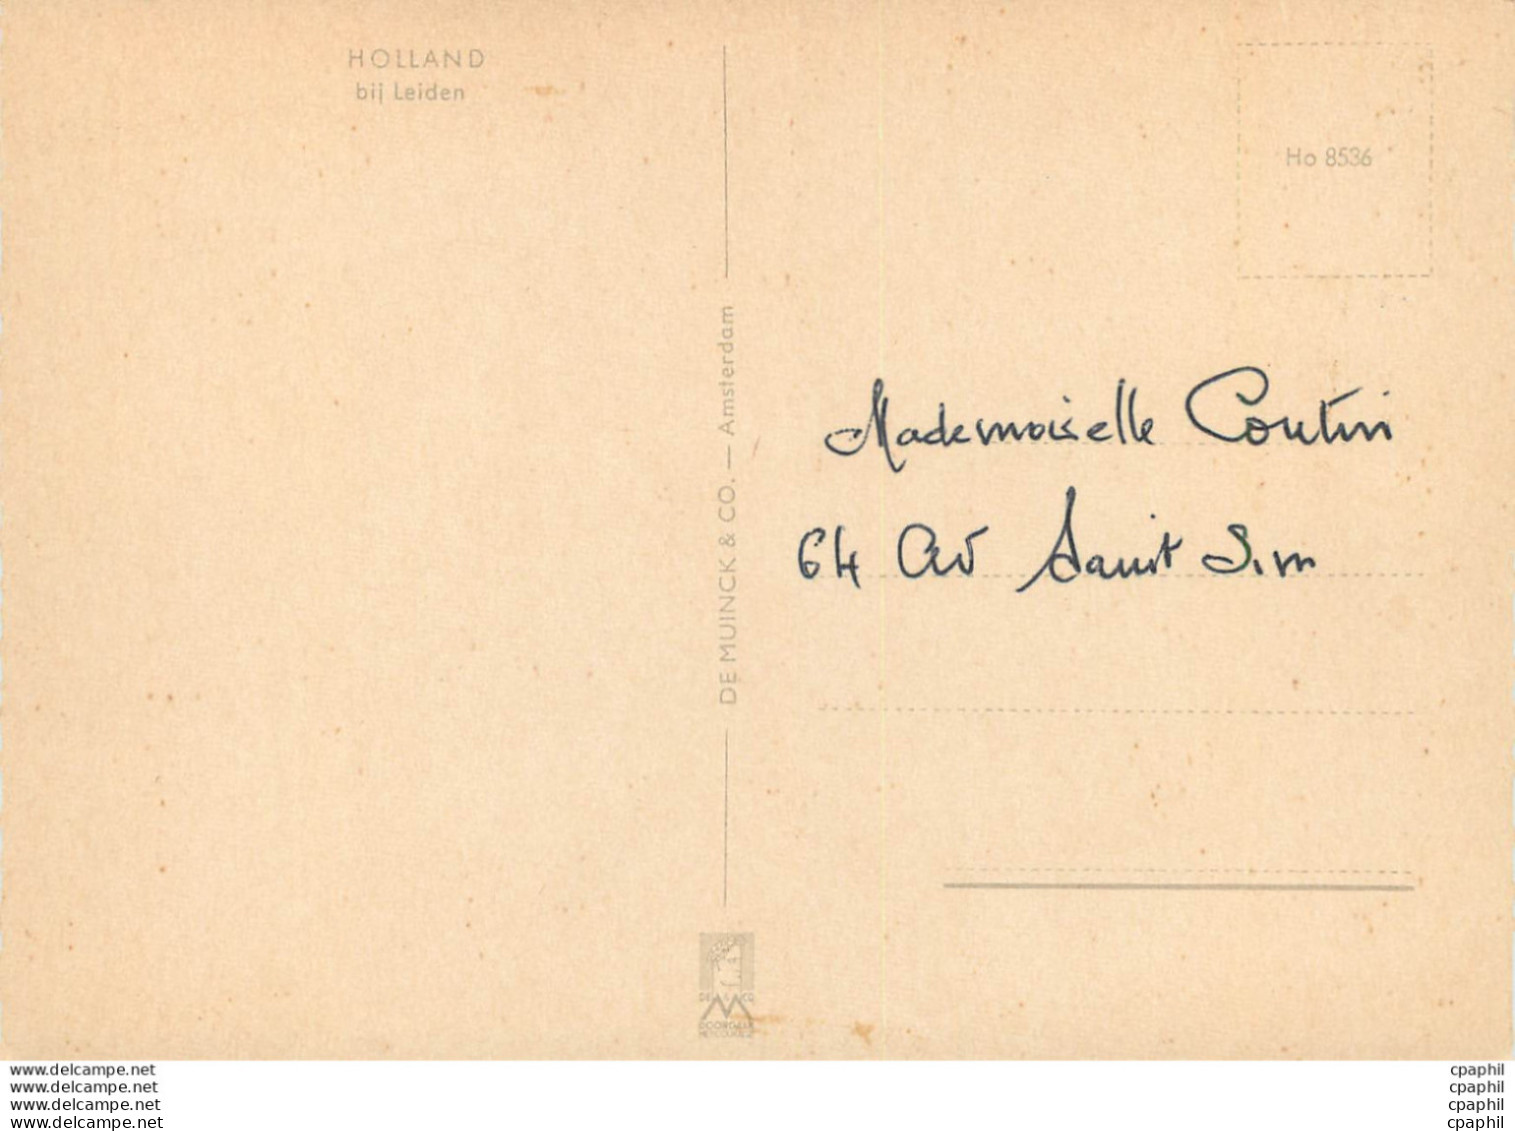 HOLLAND
bij Leiden
Ho 8536
DE MUINCK & CO. — Amsterdam
Mademoiselle Coutin
64 av Saint S.m
www.delcampe.net
www.delcampe.net
www.delcampe.net
www.delcampe.net
cpaphil
cpaphil
cpaphil
cpaphil